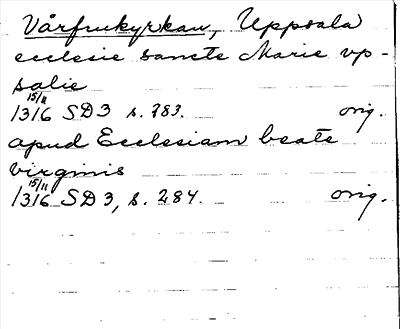 Vårfrukyrkan, Uppsala
ecclesie sancte Marie vp-
salie
15/11
1316 SD3 s. 283. orig.
apud Ecclesiam beate
virginis
15/11
1316 SD3, s. 284. orig.